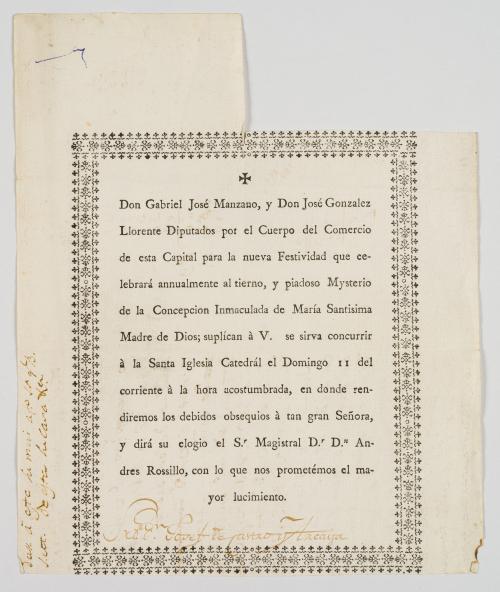 ✠
Don Gabriel José Manzano, y Don José Gonzalez
Llorente Diputados por el Cuerpo del Comercio
de esta Capital para la nueva Festividad que ce-
lebrará annualmente al tierno, y piadoso Mysterio
de la Concepcion Inmaculada de María Santisima
Madre de Dios; suplícan à V. se sirva concurrir
à la Santa Iglesia Catedrál el Domingo 11 del
corriente à la hora acostumbrada, en donde ren-
diremos los debidos obsequios à tan gran Señora,
y dirá su elogio el S.r Magistral D.r D.n An-
dres Rossillo, con lo que nos prometémos el ma-
yor lucimiento.